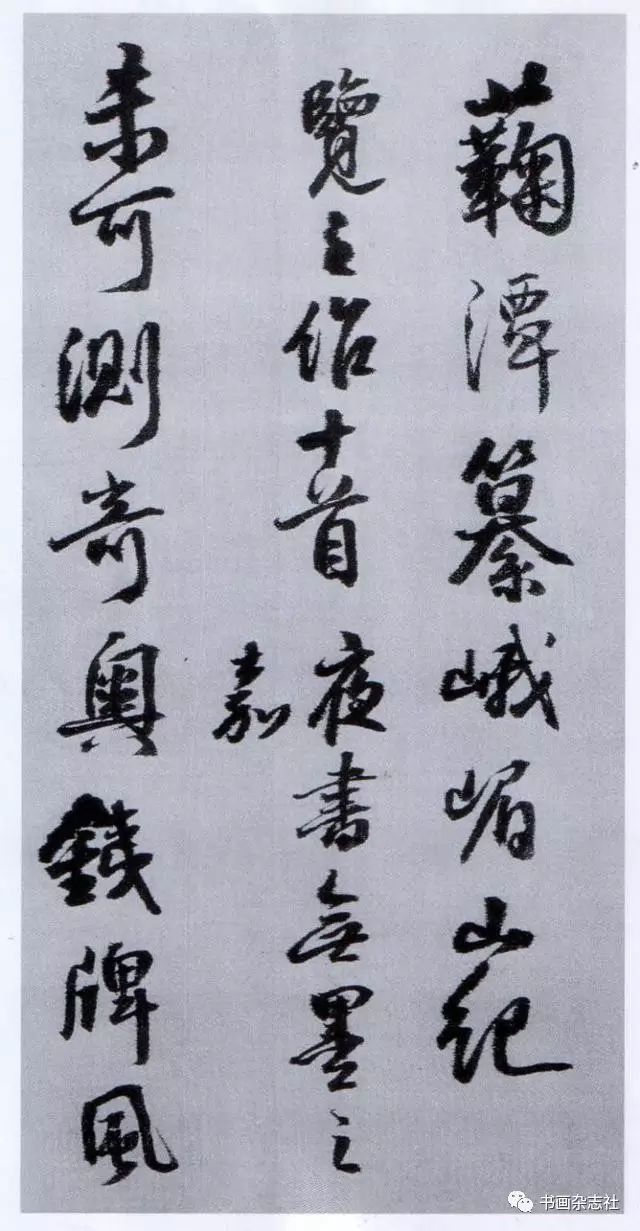 蘜潭纂峨嵋山紀
覽之十首夜書無墨之
嘉
未可測奇奧鐵牌風
书画杂志社